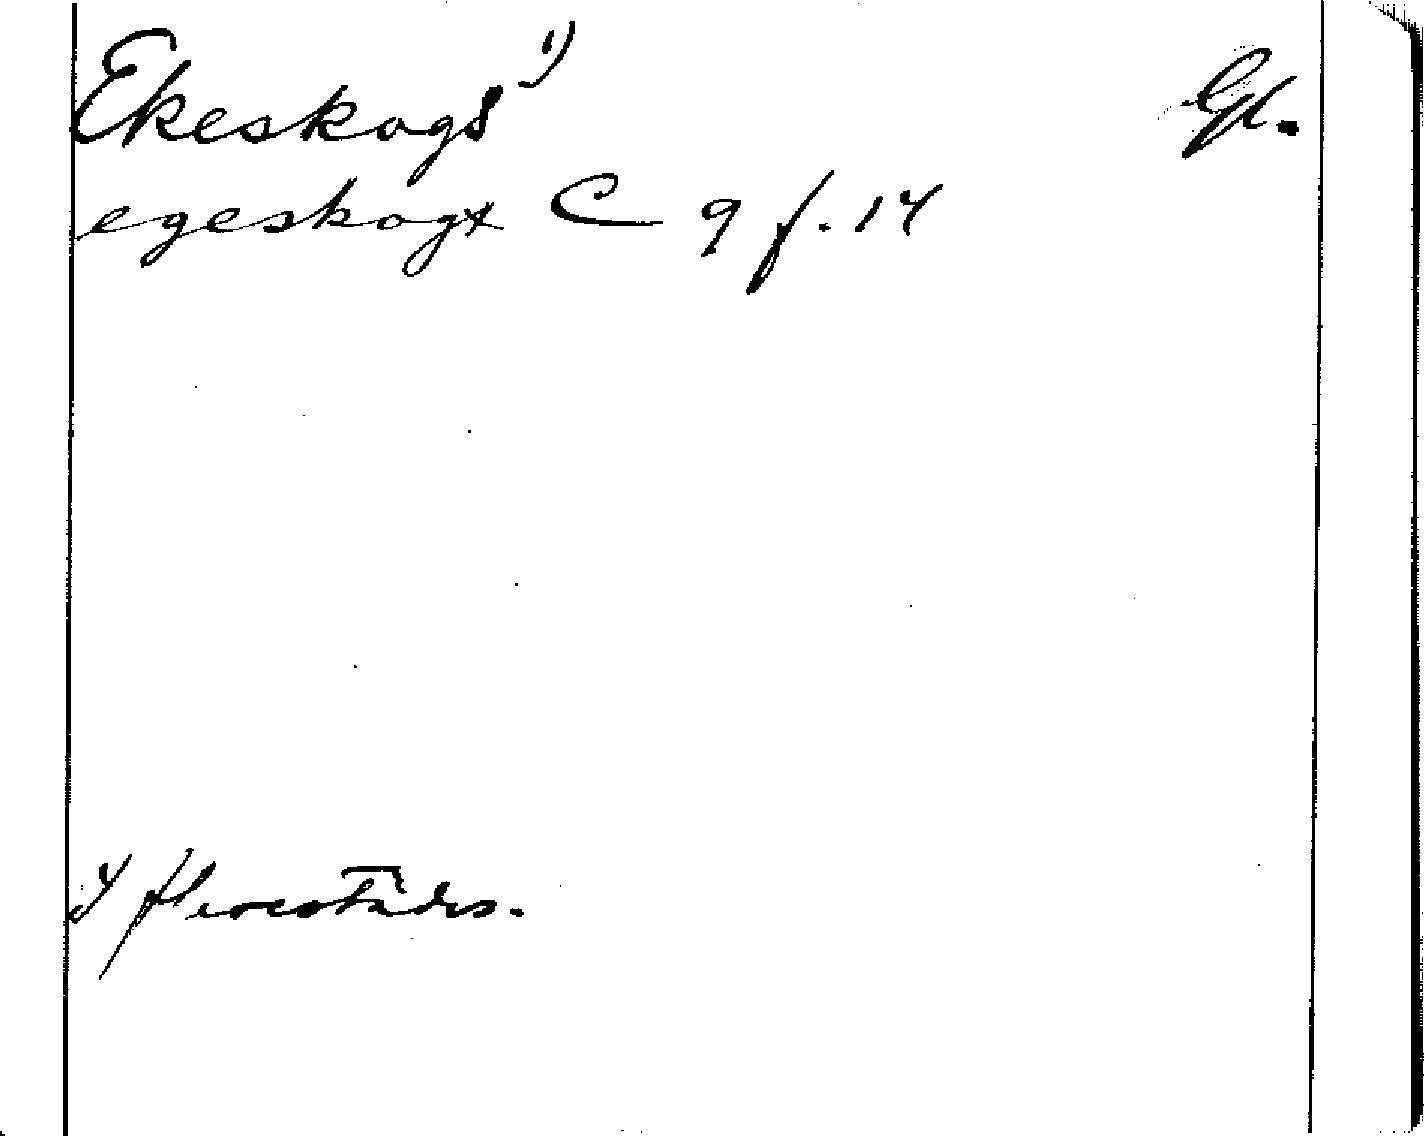 Ekeskogs ¹) Gl.
egeskogx C 9 f. 14
¹) flerestädes.